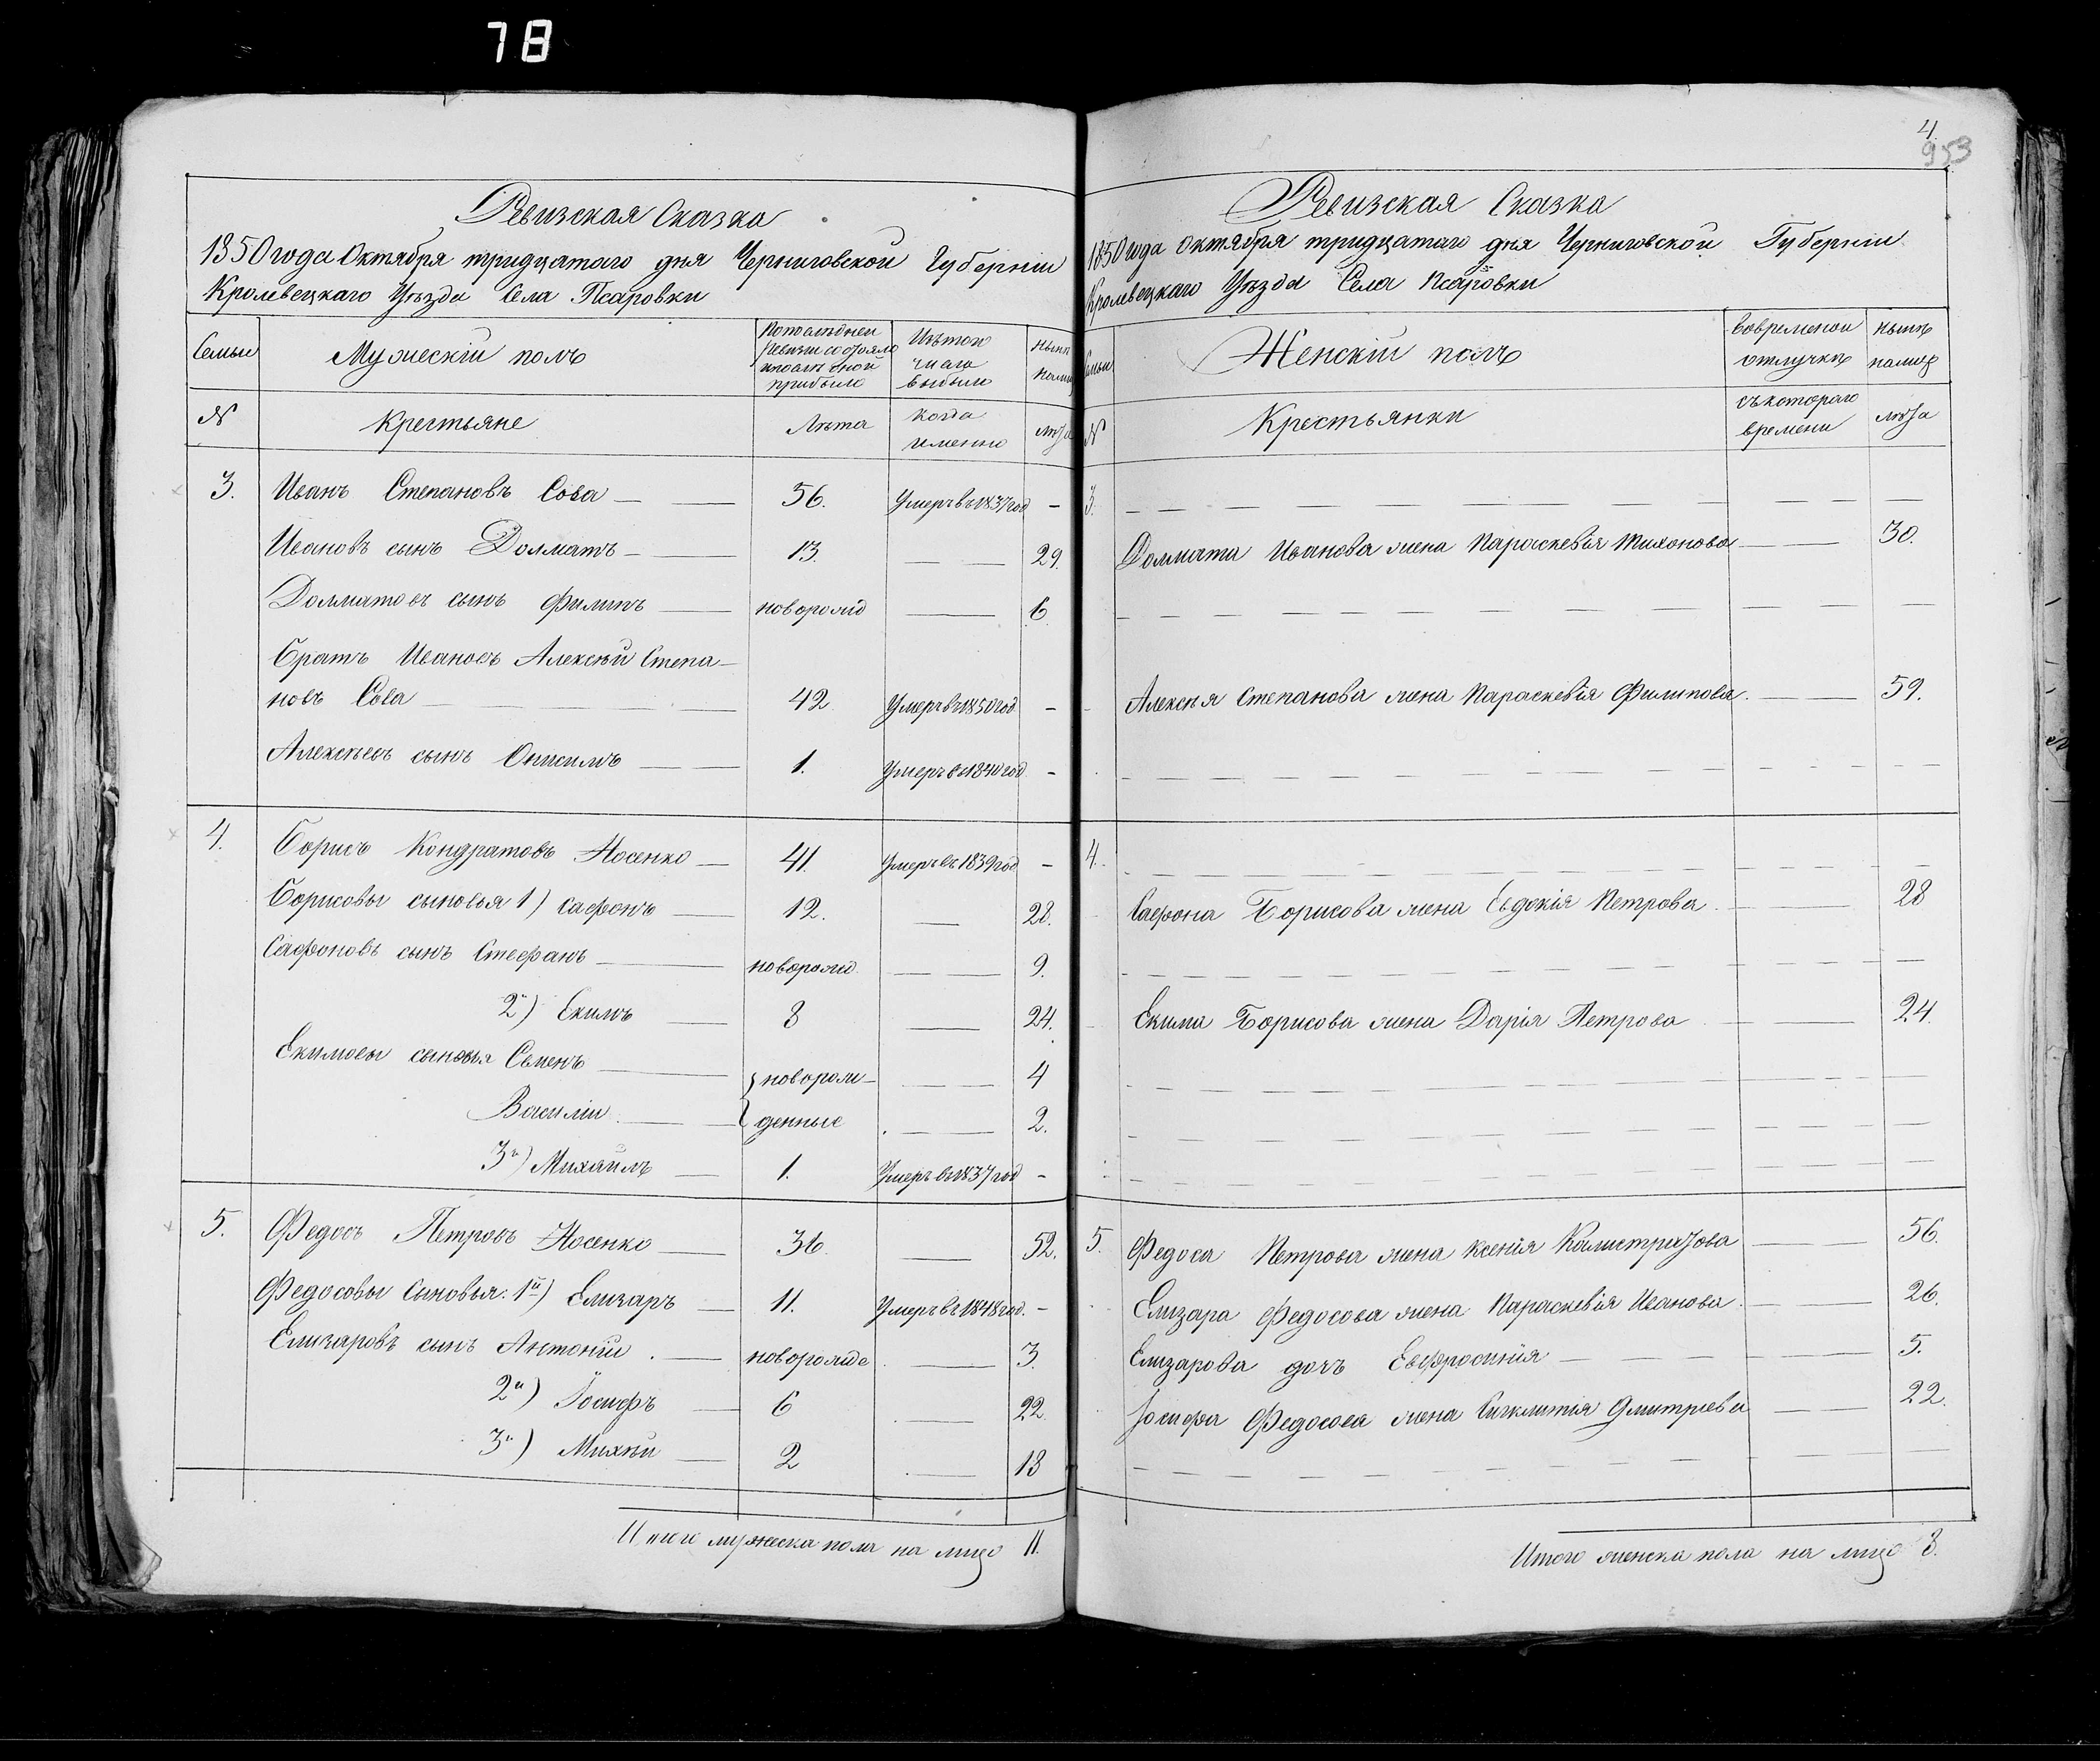 78
Ревизская Сказка
1850 года Октября тридцатаго дня Черниговской Губерніи
Кролевецкаго Уѣзда Села Псаровки
Семьи
Мужескій полъ
По последней
ревизіи состояло
и после оной
прибыло
Изъ того
числа
выбыло
Нынѣ
на лицо
№
Крестьяне
Лѣта
когда
именно
лѣта
3. Иванъ Степановъ Сова — — 56. Умеръ въ 1837 год —
Ивановъ сынъ Долматъ — — 13. — — 29.
Долматовъ сынъ Филипъ — новорожд — 6
Братъ Ивановъ Алексѣй Степа-
новъ Сова — — — 42 Умеръ въ 1850 год —
Алексѣевъ сынъ Онисимъ — — 1. Умеръ въ 1840 год —
4. Борисъ Кондратовъ Носенко — 41. Умеръ въ 1839 год —
Борисовы сыновья 1) Сафонъ — 12. — 28.
Сафоновъ сынъ Стефанъ — новорожд. — 9.
2й) Екимъ — 8 — 24.
Екимовы сыновья Семенъ — } новорож- — 4
Василій — } денные — 2.
3й) Михаилъ — 1. Умеръ въ 1837 год —
5. Федосъ Петровъ Носенко — 36. — 52.
Федосовы Сыновья: 1й) Елизаръ — 11. Умеръ въ 1848 год. —
Елизаровъ сынъ Антоній — новорожде — 3.
2й) Іосифъ — 6 — 22
3й) Михѣй — 2 — 18
Итого мужеска пола на лицо 11.
4.
953
Ревизская Сказка
1850 года Октября тридцатаго дня Черниговской Губерніи
Кролевецкаго Уѣзда Села Псаровки
Семьи
Женскій полъ
Вовременой
отлучкѣ
нынѣ
на лицо
№
Крестьянки
съ котораго
времени
лѣта
3. — — — — — — — —
Долмата Иванова жена Параскевія Тихонова — 30.
— — — — — — — —
Алексѣя Степанова жена Параскевія Филипова — 59.
— — — — — — — —
4. — — — — — — — —
Сафона Борисова жена Евдокія Петрова — 28
— — — — — — — —
Екима Борисова жена Дарія Петрова — 24.
— — — — — — — —
— — — — — — — —
— — — — — — — —
5. Федоса Петрова жена Ксенія Калистратова — 56.
Елизара Федосова жена Параскевія Иванова — 26.
Елизарова дочъ Евфросинія — — 5.
Іосифа Федосова жена Сигклитія Дмитріева — 22.
— — — — — — — —
Итого женска пола на лицо 8.